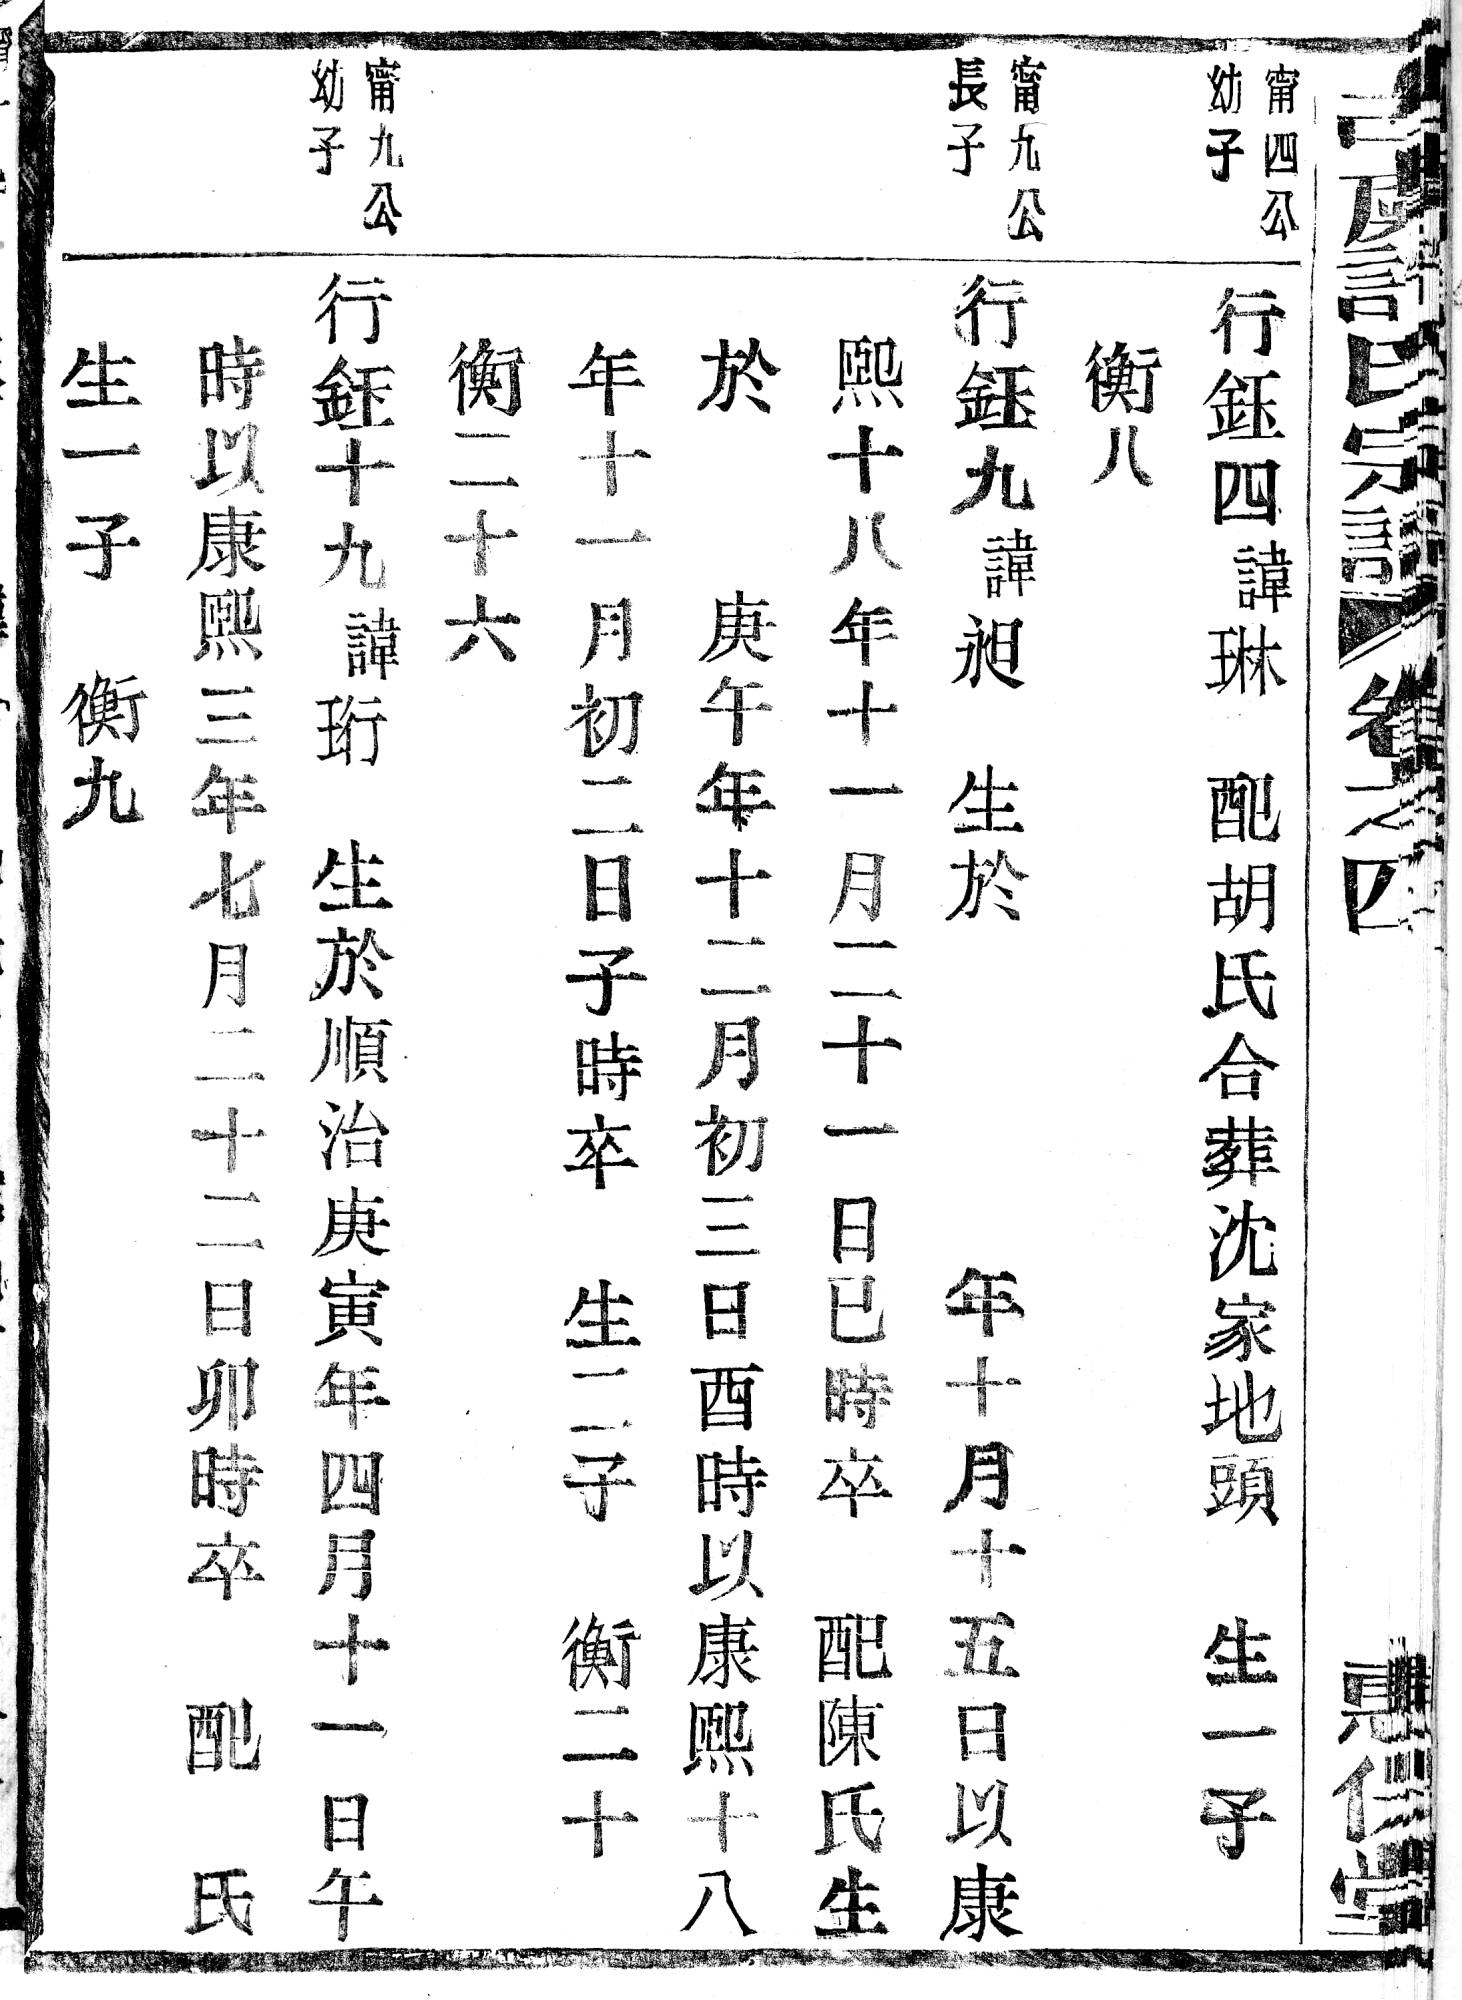 宗譜 卷之四
惠仁堂
甯四公
幼子
行鈺四諱琳　配胡氏合葬沈家地頭　生一子
衡八
甯九公
長子
行鈺九諱昶　生於　　　　年十月十五日以康
熙十八年十一月二十一日巳時卒　配陳氏生
於　　庚午年十二月初三日酉時以康熙十八
年十一月初二日子時卒　生二子　衡二十
衡二十六
甯九公
幼子
行鈺十九諱珩　生於順治庚寅年四月十一日午
時以康熙三年七月二十二日卯時卒　配　氏
生一子　衡九